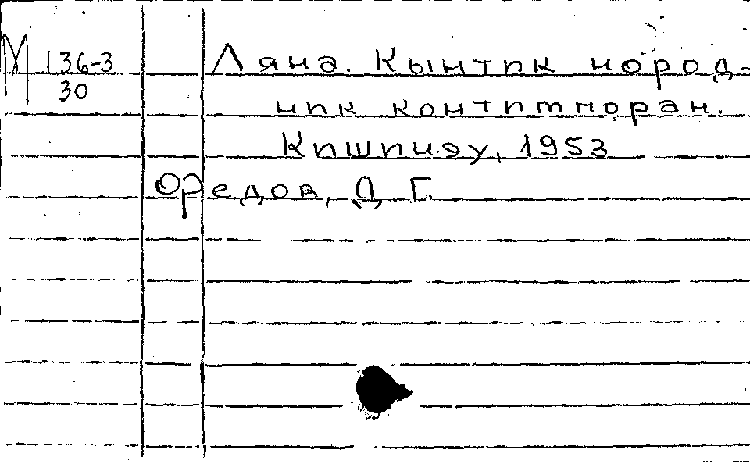 М 136-3
30
Лянэ. Кынтпк нород-
нпк контпмпоран.
Кпшпнэу, 1953
Федов, Д. Г.